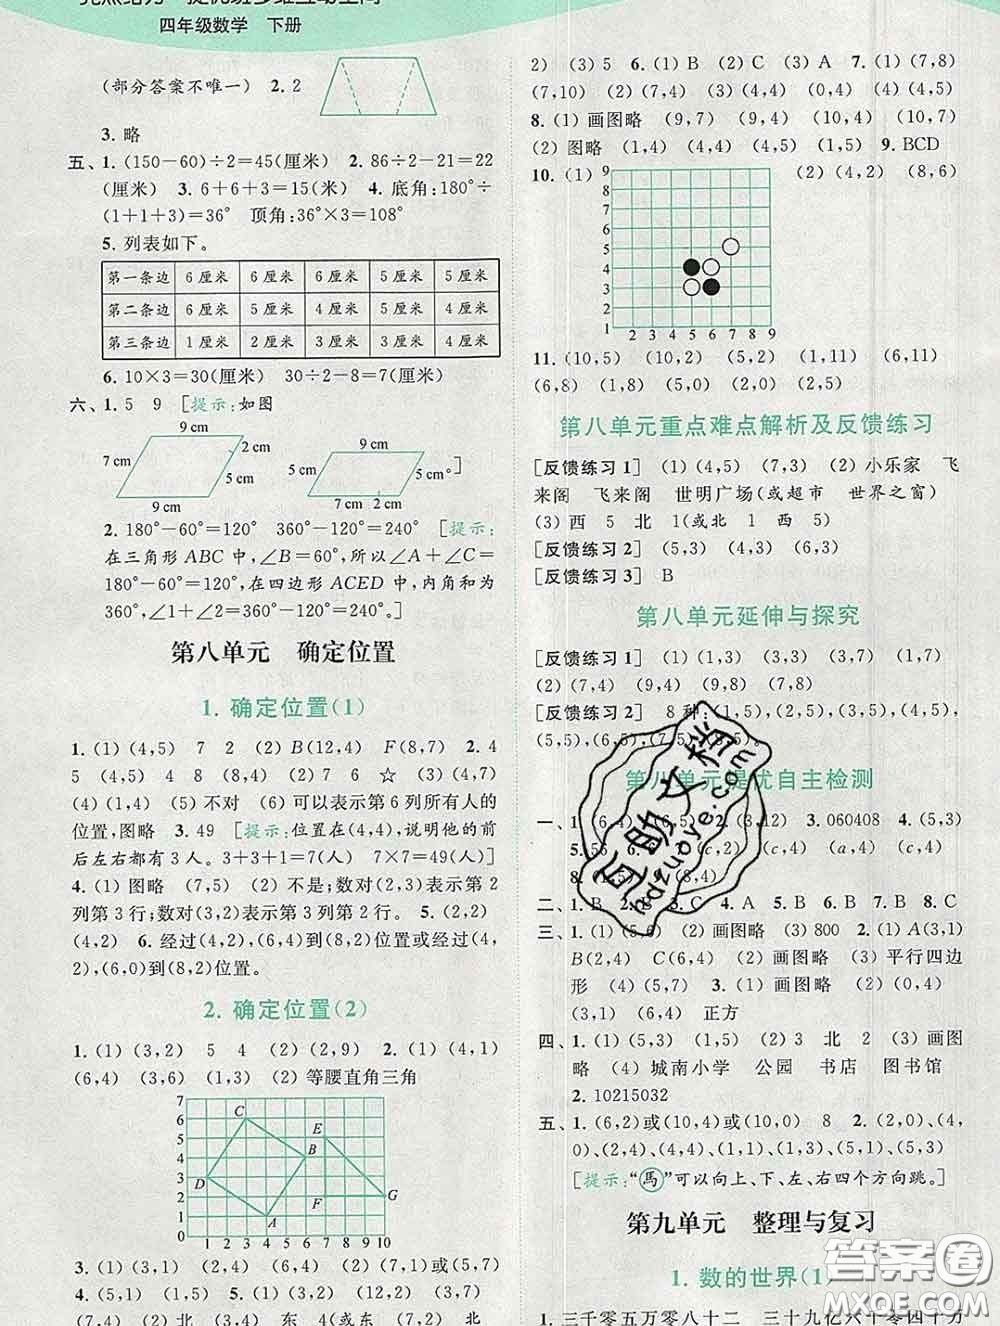 亮点给力 提优班多维互动空间
四年级数学 下册
(部分答案不唯一) 2. 2
3. 略
五、1. (150－60)÷2＝45(厘米) 2. 86÷2－21＝22
(厘米) 3. 6＋6＋3＝15(厘米) 4. 底角:180°÷
(1＋1＋3)＝36° 顶角:36°×3＝108°
5. 列表如下。
第一条边 6 厘米 6 厘米 6 厘米 5 厘米 5 厘米
第二条边 6 厘米 5 厘米 4 厘米 5 厘米 4 厘米
第三条边 1 厘米 2 厘米 3 厘米 3 厘米 4 厘米
6. 10×3＝30(厘米) 30÷2－8＝7(厘米)
六、1. 5 9 [提示:如图
9 cm 2 cm 7 cm 5 cm 9 cm
9 cm 5 cm 5 cm 7 cm 2 cm ]
2. 180°－60°＝120° 360°－120°＝240° [提示:
在三角形 ABC 中,∠B＝60°,所以∠A＋∠C＝
180°－60°＝120°,在四边形 ACED 中,内角和为
360°,∠1＋∠2＝360°－120°＝240°。]
第八单元 确定位置
1. 确定位置(1)
1. (1) (4,5) 7 2 (2) B(12,4) F(8,7) 2. 4
5 (4,5) 4 8 (8,4) (2) 7 6 ☆ (4)
(4,4) (5) 不对 (6) 可以表示第 6 列所有人的
位置,图略 3. 49 [提示:位置在(4,4),说明他的前
后左右都有 3 人。3＋3＋1＝7(人) 7×7＝49(人)]
4. (1) 图略 (7,5) (2) 不是;数对(2,3)表示第 2
列第 3 行;数对(3,2)表示第 3 列第 2 行。 5. (2,2)
(4,2) 6. 经过(4,2),(6,4)到(8,2)位置或经过(4,
2),(6,0)到(8,2)位置。
2. 确定位置(2)
1. (1) (3,2) 5 4 (2) (2,9) 2. (1) (4,1)
(6,4) (3,6) (1,3) (2) 等腰直角三角
7 6 5 4 3 2 1 0
C E B D F G A
1 2 3 4 5 6 7 8 9 10
3. (1) (1,2) (4,2) (7,2)或(5,7) (2)
(4,5) (5,1) (5,4)或(5,5)
2) (3) 5 6. (1) B (2) C (3) A 7. (1) (7,8)
(7,10) (2) (7,8) (3) (4,4) (4,0) (4) (4,5)
8. (1) 画图略 (9,7) (9,4) (4,4) (4,7)
(2) 图略 (1,4) (4,4) (4,5) (1,5) 9. BCD
10. (1) (2) (4,2) (8,6)
9 8 7 6 5 4 3 2 1
2 3 4 5 6 7 8 9
11. (10,5) (10,2) (5,2) (1,11) (6,11)
(6,8) (1,8) (5,0) (2,0) (2,5)
第八单元重点难点解析及反馈练习
[反馈练习 1] (1) (4,5) (7,3) (2) 小乐家 飞
来阁 飞来阁 世明广场(或超市 世界之窗)
(3) 西 5 北 1(或北 1 西 5)
[反馈练习 2] (5,3) (4,3) (5,3)
[反馈练习 3] B
第八单元延伸与探究
[反馈练习 1] (1) (1,3) (3,3) (3,7) (1,7)
(2) (7,4) (9,4) (9,8) (7,8)
[反馈练习 2] 8 种:(1,5),(2,5),(3,5),(4,5),
(5,5),(6,5),(7,5),(8,5)。
第八单元提优自主检测
3. 060408 4. (5,3)
(c,2) (c,4) (a,4) (c,4)
3. C 4. A 5. B 6. B 7. B 8. C
三、1. (1) (5,6) (2) 画图略 (3) 800 2. (1) A(3,1)
B(2,4) C(6,4) (2) 画图略 (3) 平行四边
形 (4) (3,1) 3. (1) 画图略 (2) (0,4)
(3,1) (6,4) 正方
四、1. (1) (5,1) (1,5) (2) 3 北 2 (3) 画图
略 (4) 城南小学 公园 书店 图书馆
2. 10215032
五、1. (6,2)或(10,4)或(10,0) 8 2. (2,0)、(4,
0)、(2,4)、(4,4)、(1,1)、(1,3)、(5,1)、(5,3)
[提示:“馬”可以向上、下、左、右四个方向跳。]
第九单元 整理与复习
1. 数的世界(1)
1. 三千零五万零八十二 三十九亿六十零四十万
互助文档
hdzuoye.com
答案圈
MXQE.COM